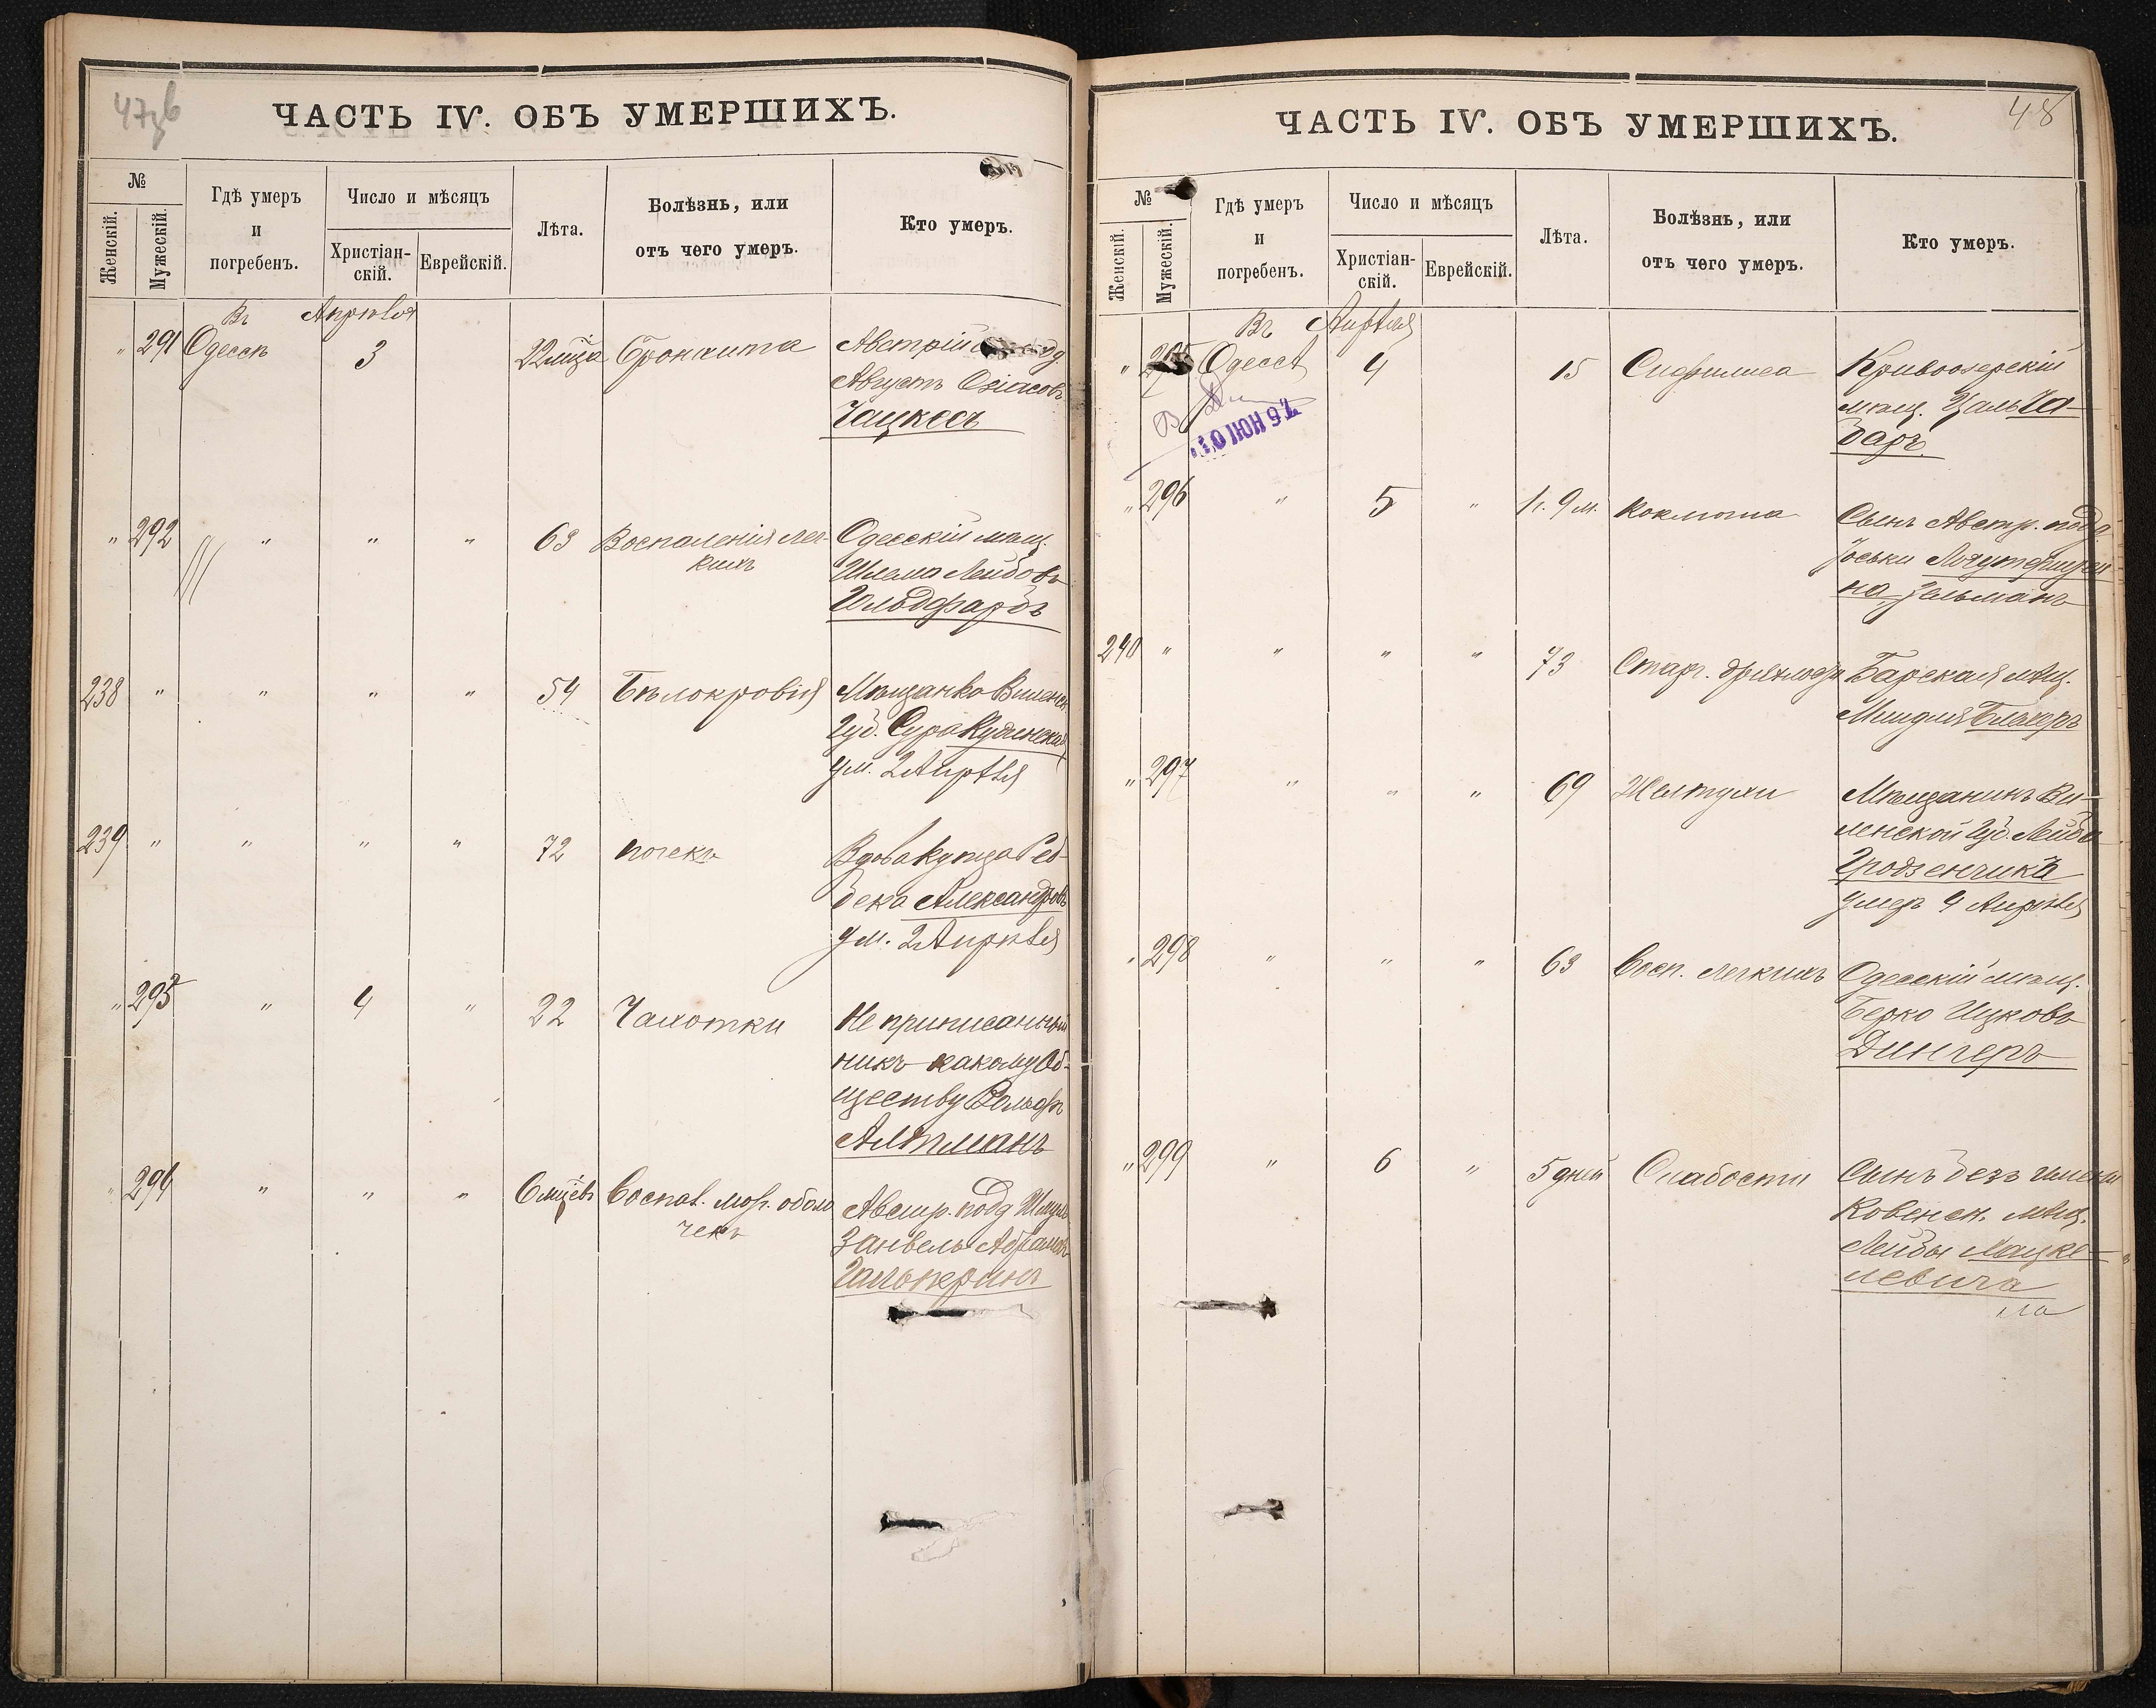 47об
ЧАСТЬ IV. ОБЪ УМЕРШИХЪ.
№
Женскій.
Мужескій.
Гдѣ умеръ
и
погребенъ.
Число и мѣсяцъ
Христіан-
скій.
Еврейскій.
Лѣта.
Болѣзнь, или
отъ чего умеръ.
Кто умеръ.
Въ Апрѣля
" 291 Одессѣ 3 22 мца Бронхита Австрій
Августъ Осіасовъ
Чацкесъ
" 292 " " " 63 Воспаленія лег-
кихъ
Одесскій мѣщ.
Шлема Лейбовъ
Гольдфарбъ
238 " " " " 54 Бѣлокровія Мѣщанка Виленск.
Губ. Сура Кученская
ум. 2 Апрѣля
239 " " " " 72 почекъ Вдова купца Реб-
бека Александровъ
ум. 2 Апрѣля
" 293 " 4 " 22 Чахотки Не приписанный
никъ какому Об-
ществу Вольфъ
Алтманъ
" 294 " " " 6 мцевъ Воспал. мозг. оболо
чекъ
Австр. подд Шмуль
Занвель Абрамовъ
Гальперинъ
48
ЧАСТЬ IV. ОБЪ УМЕРШИХЪ.
№
Женскій.
Мужескій.
Гдѣ умеръ
и
погребенъ.
Число и мѣсяцъ
Христіан-
скій.
Еврейскій.
Лѣта.
Болѣзнь, или
отъ чего умеръ.
Кто умеръ.
Въ Апрѣля
" 295 Одессѣ 4 15 Сифилиса Кривоозерскій
мѣщ. Цаль Ча-
баръ
" 296 " 5 " 1 г. 9 м. Коклюша Сынъ Австр. подд.
Іоськи
на Зельманъ
240 " " " " 73 Стар. дряхлости Барская мѣщ.
Миндля Блехеръ
" 297 " " " 69 Желтухи Мѣщанинъ Ви-
ленской Губ. Лейба
Гродзенчикъ
умеръ 4 Апрѣля
" 298 " " " 63 Восп. легкихъ Одесскій мѣщ.
Берко Ицковъ
Дингеръ
" 299 " 6 " 5 дней Слабости Сынъ безъ имени
Ковенск. мѣщ.
Лейбы Мацке-
левича